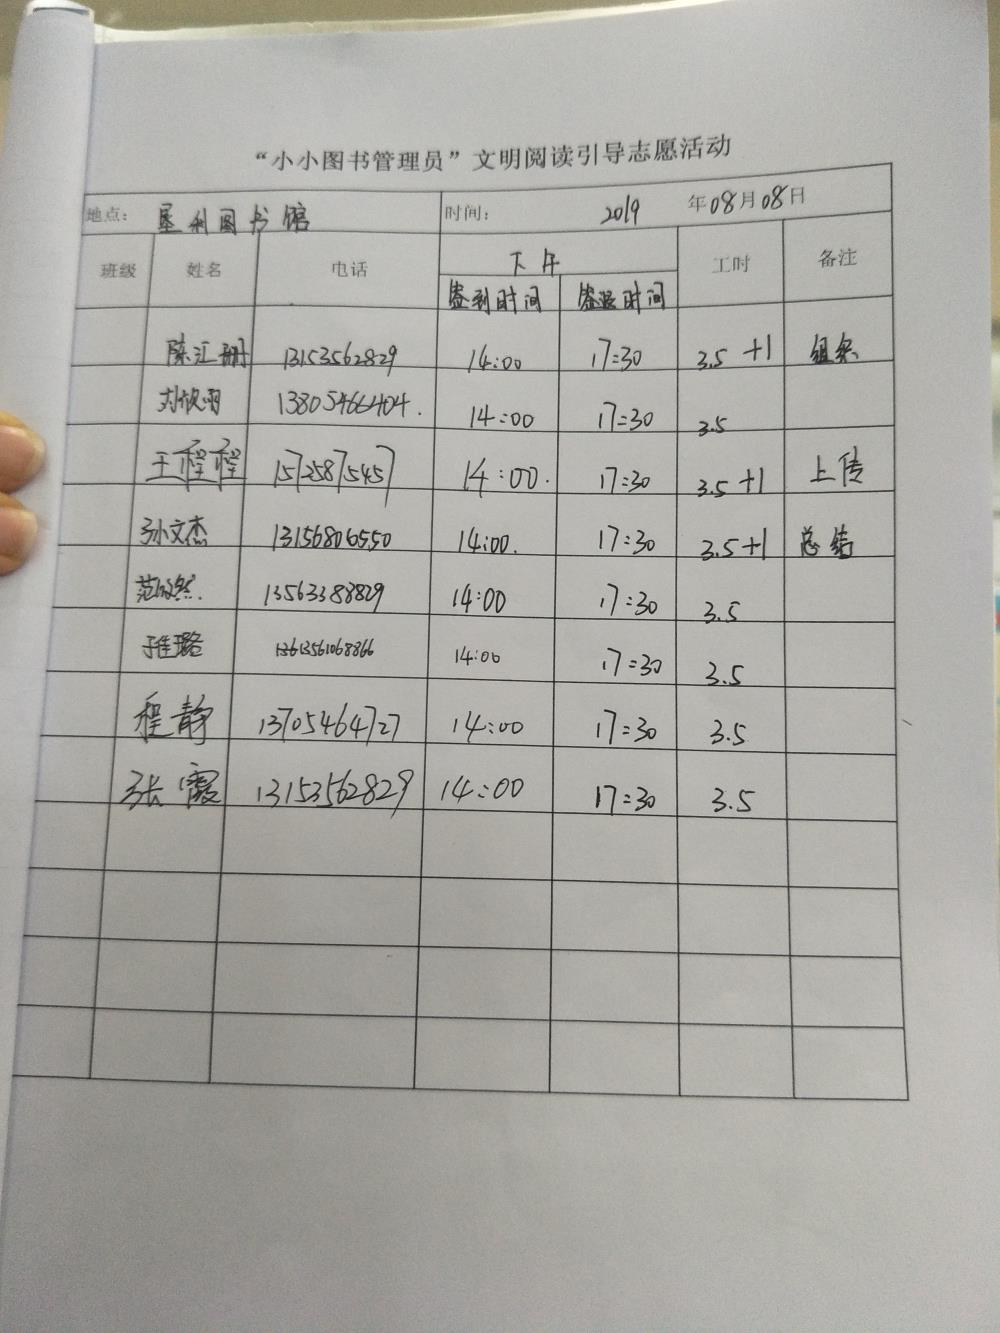 “小小图书管理员”文明阅读引导志愿活动
地点： 垦利图书馆 时间： 2019 年08月08日
班级 姓名 电话 下午 工时 备注
签到时间 签退时间
陈汇册 13153562829 14:00 17:30 3.5 +1 组织
刘欣雨 13805466404. 14:00 17:30 3.5
王程程 15725875457 14:00. 17:30 3.5 +1 上传
孙文杰 13156806550 14:00. 17:30 3.5 +1 总结
范 然. 13563388829 14:00 17:30 3.5
于佳璐 14:00 17:30 3.5
程静 13705464727 14:00 17:30 3.5
张霞 13153562829 14:00 17:30 3.5